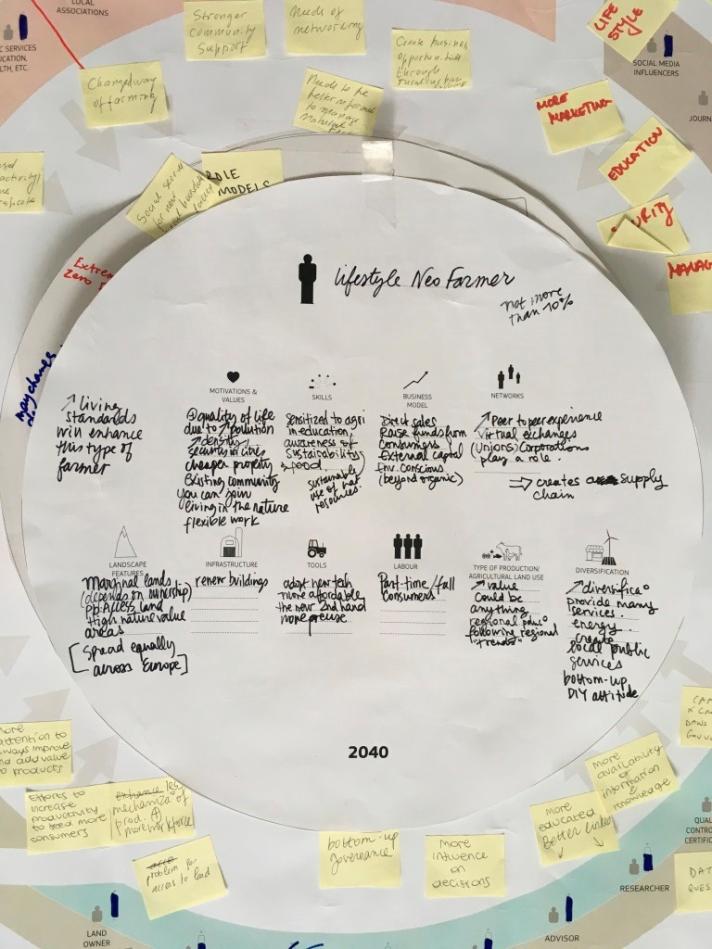 LOCAL
ASSOCIATIONS
C SERVICES
UCATION,
LTH, ETC.
Stronger
Community
Support
Needs of
networking
Create business
through
LIFE
STYLE
SOCIAL MEDIA
INFLUENCERS
JOURN
Changed way
of farming
Needs to be
better informed
to manage
natural
MORE
MARKETING
EDUCATION
ROLE
MODELS
Social
for new
MANAG
Extre
Zero
may change
Lifestyle Neo Farmer
not more
than 10%
↗ living
standards
will enhance
this type of
farmer
MOTIVATIONS &
VALUES
⊕ quality of life
due to ↗ pollution
↗ density
security in cities
cheaper property
Existing community
you can join
living in the nature
flexible work
SKILLS
Sensitized to agri
in education,
awareness of
sustainability
& food.
sustainable
use of nat
resources.
BUSINESS
MODEL
Direct sales
Raise funds from
consumers
External capital
Env. conscious
(beyond organic)
NETWORKS
↗ Peer to peer experience
Virtual exchanges
(Unions) Corporations
play a role.
⇒ creates supply
chain
LANDSCAPE
FEATURES
Marginal lands
(depends on ownership)
pp. Access land
High nature value
areas
[Spread equally
across Europe]
INFRASTRUCTURE
renew buildings
TOOLS
adapt new tech
more affordable
the new 2nd hand
more precise
LABOUR
Part-time/full
Consumers
TYPE OF PRODUCTION/
AGRICULTURAL LAND USE
↗ value
could be
anything
regional
following regional
"trends"
DIVERSIFICATION
↗ diversifica°
provide many
services.
energy
create
local public
services
bottom-up
DIY attitude
2040
More
attention to
always improve
and add value
to products
Efforts to
increase
productivity
to feed more
consumers
less
mechaniza° of
prod. ⊕
more workforce
problem for
access to land
bottom-up
governance
More
influence on
decisions
More
educated
Better linked
More
availability
of
information &
knowledge
QUAL
CONTRO
CERTIFIC
RESEARCHER
ADVISOR
LAND
OWNER
DAT
QUES